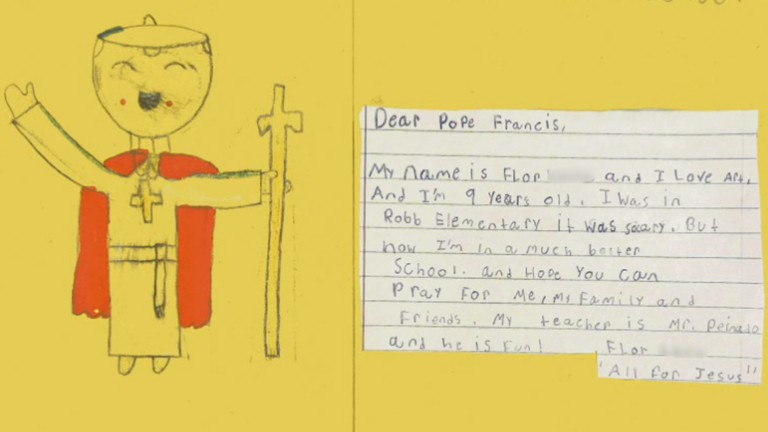 Dear Pope Francis,
My name is Flor and I Love Art,
And I'm 9 years old. I was in
Robb Elementary it was scary. But
now I'm in a much better
School. and Hope You can
Pray For Me, My Family and
Friends. My teacher is Mr. Peinado
and he is Fun!
Flor
"All for Jesus"